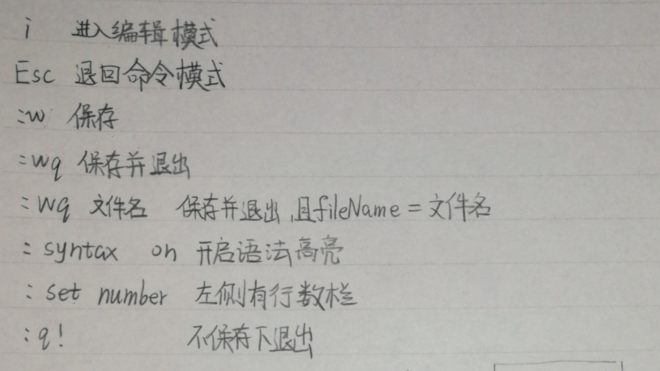 i 进入编辑模式
Esc 退回命令模式
:w 保存
:wq 保存并退出
:wq 文件名 保存并退出,且fileName = 文件名
: syntax on 开启语法高亮
: set number 左侧有行数栏
:q! 不保存下退出